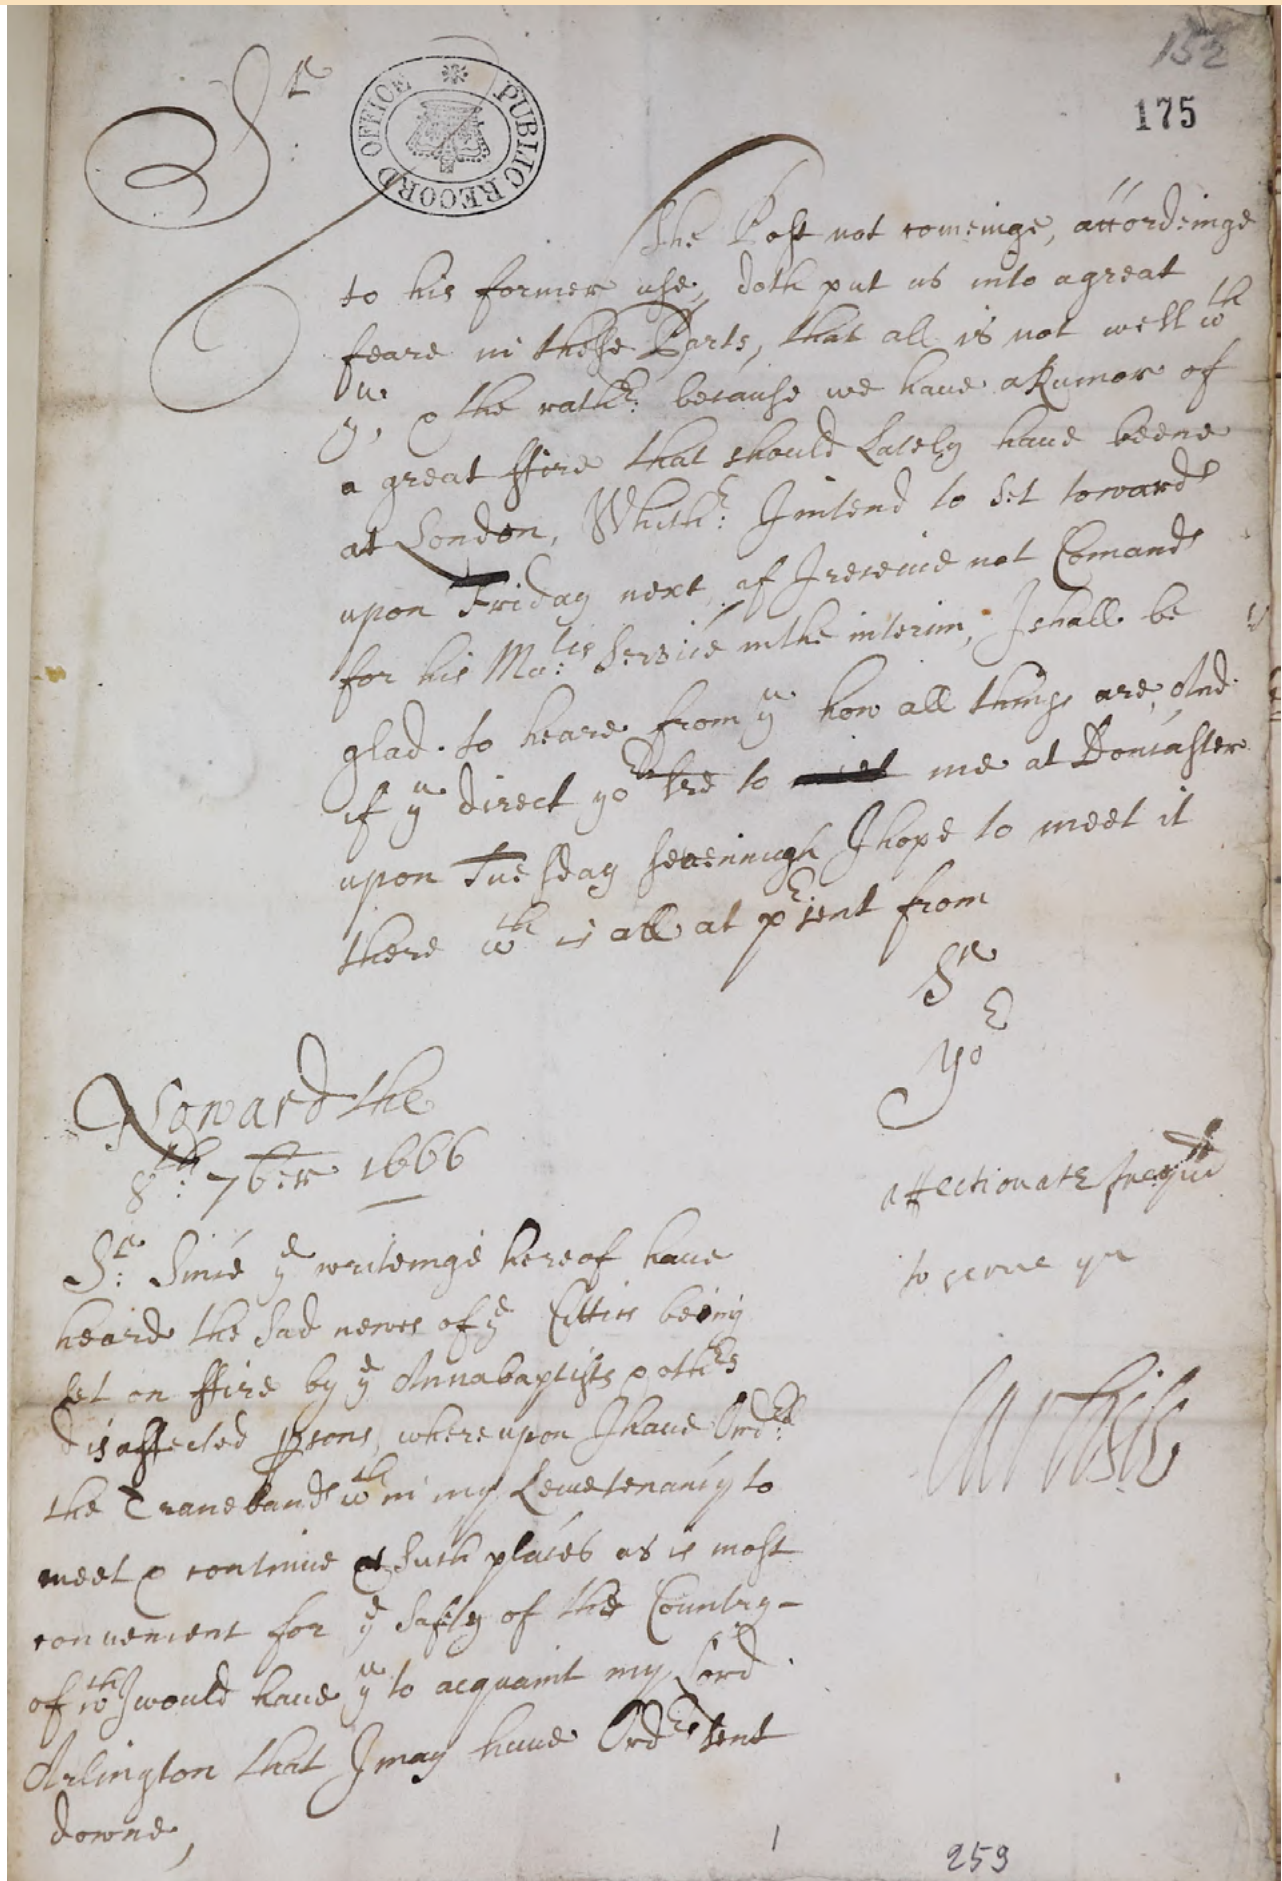 152
175
PUBLIC RECORD OFFICE
Sr:
The Post not comeinge, accordeinge
to his former use, doth put us into a great
feare in these Parts, that all is not well wth
yu. & the rathr: because we have a Rumor of
a great ffire that should Lately have beene
at London, Whithr: I intend to set towards
upon Friday next, if I receive not Comands
for his Ma:ties Service in the interim, I shall be
glad to heare from yu how all things are, And
if yu direct yor lre to me at Doncaster
upon Tuesday sevennigh I hope to meet it
there wch is all at prsent from
Sr
yor
affectionate
to serve yu
Carlisle
Naward the
8th: 7ber 1666
Sr: Since ye writeinge hereof have
heard the Sad newes of ye Citties being
set on ffire by ye Annabaptists & othrs
disaffected psons, whereupon I have Ordrd:
the Traneband wthin my Leiuetenancy to
meet & continue at Such places as is most
convenient for ye Safety of the Country -
of wch I would have yu to acquaint my Lord
Arlington that I may have Ordrs sent
downe,
259